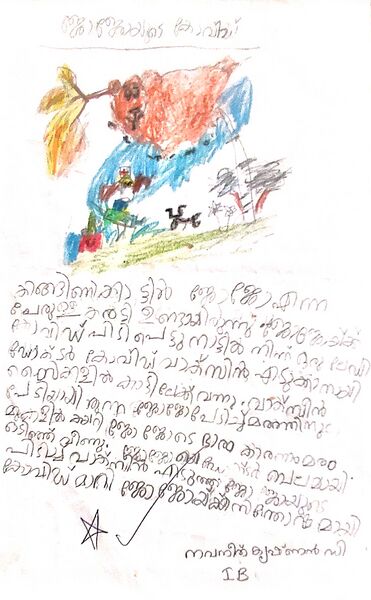 ജോജോയുടെ കോവിഡ്
കിങ്ങിണിക്കാട്ടിൽ ജോജോ എന്ന
പേരുള്ള കരടി ഉണ്ടായിരുന്നു. ജോജോയ്ക്ക്
കോവിഡ് പിടിപെട്ടു നാട്ടിൽ നിന്ന് ഒരു ലേഡി
ഡോക്ടർ കോവിഡ് വാക്സിൻ എടുക്കാനായി
സൈക്കിളിൽ കാട്ടിലേക്ക് വന്നു. വാക്സിൻ
പേടിയായിരുന്ന ജോജോ പേടിച്ച് മരത്തിനു
മുകളിൽ കയറി ജോജോടെ ഭാരം കാരണം മരം
ഒടിഞ്ഞ് വീണു. ജോജോ ബെലമായി
പിടിച്ച് വാക്സിൻ എടുത്തു ജോജോയുടെ
കോവിഡ് മാറി ജോജോയ്ക്ക് സന്തോഷമായി
നവനീത് കൃഷ്ണൻ ഡി
I B